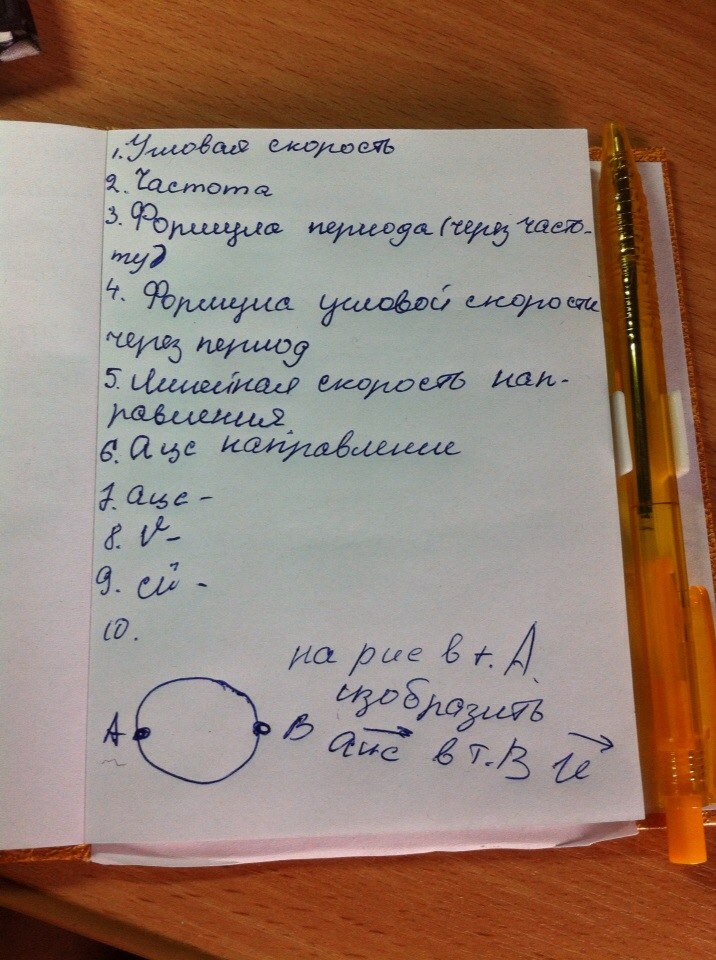 1. Угловая скорость
2. Частота
3. Формула периода (через часто-
ту)
4. Формула угловой скорости
через период
5. Линейная скорость нап-
равления
6. Aцс направление
7. aцс -
8. V -
9.
10.
на рис в т. А
изобразить
A
B
aцс в т. B